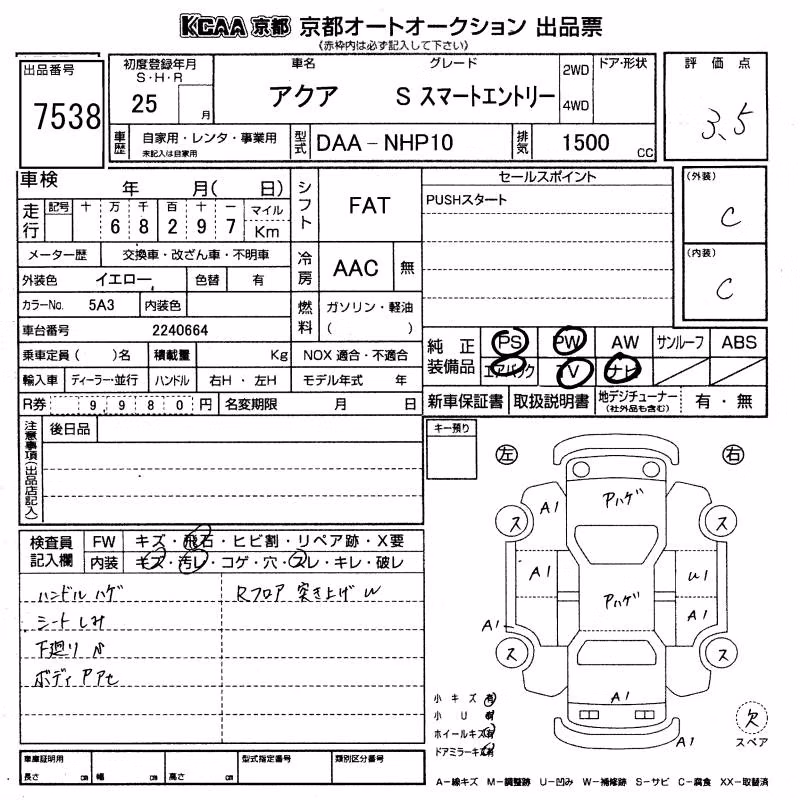 KCAA 京都 京都オートオークション 出品票
《赤枠内は必ず記入して下さい》
出品番号
7538
初度登録年月
S・H・R
25
月
車名
アクア
グレード
S スマートエントリー
2WD
4WD
ドア・形状
評価点
3.5
車歴
自家用・レンタ・事業用
未記入は自家用
型式
DAA－NHP10
排気
1500
CC
(外装)
C
(内装)
C
車検 年 月( 日)
走行
記号 十 万 千 百 十 一 マイル
6 8 2 9 7 Km
メーター歴 交換車・改ざん車・不明車
外装色 イエロー 色替 有
カラーNo. 5A3 内装色
車台番号 2240664
乗車定員 ( )名 積載量 Kg
NOX 適合・不適合
輸入車 ディーラー・並行 ハンドル 右H・左H モデル年式 年
R券 9 9 8 0 円 名変期限 月 日
シフト
FAT
冷房
AAC 無
燃料
ガソリン・軽油
( )
セールスポイント
PUSHスタート
純正装備品
PS PW AW サンルーフ ABS
エアバック TV ナビ
新車保証書 取扱説明書 地デジチューナー
(社外品も含む)
有・無
注意事項(出品店記入)
後日品
キー預り
左
右
検査員記入欄
FW キズ・飛石・ヒビ割・リペア跡・X要
内装 キズ・汚レ・コゲ・穴・スレ・キレ・破レ
ハンドル ハゲ
Rフロア 突き上げ U
シート しみ
下廻り
ボディ
A1
Pハゲ
ス
ス
A1
U1
Pハゲ
A1
A1
ス
ス
A1
A1
小キズ 有
小U 有
ホイールキズ 有
ドアミラーキズ 有
欠
スペア
車庫証明用
長さ cm 幅 cm 高さ cm
型式指定番号
類別区分番号
A−線キズ M−調整跡 U−凹み W−補修跡 S−サビ C−腐食 XX−取替済